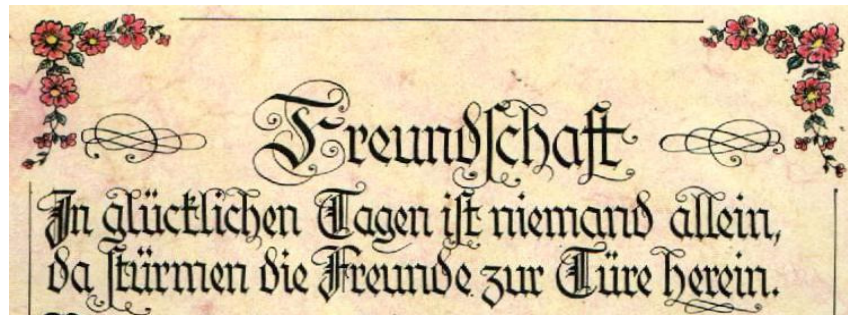 Freundſchaft
In glücklichen Tagen iſt niemand allein,
da ſtürmen die Freunde zur Türe herein.